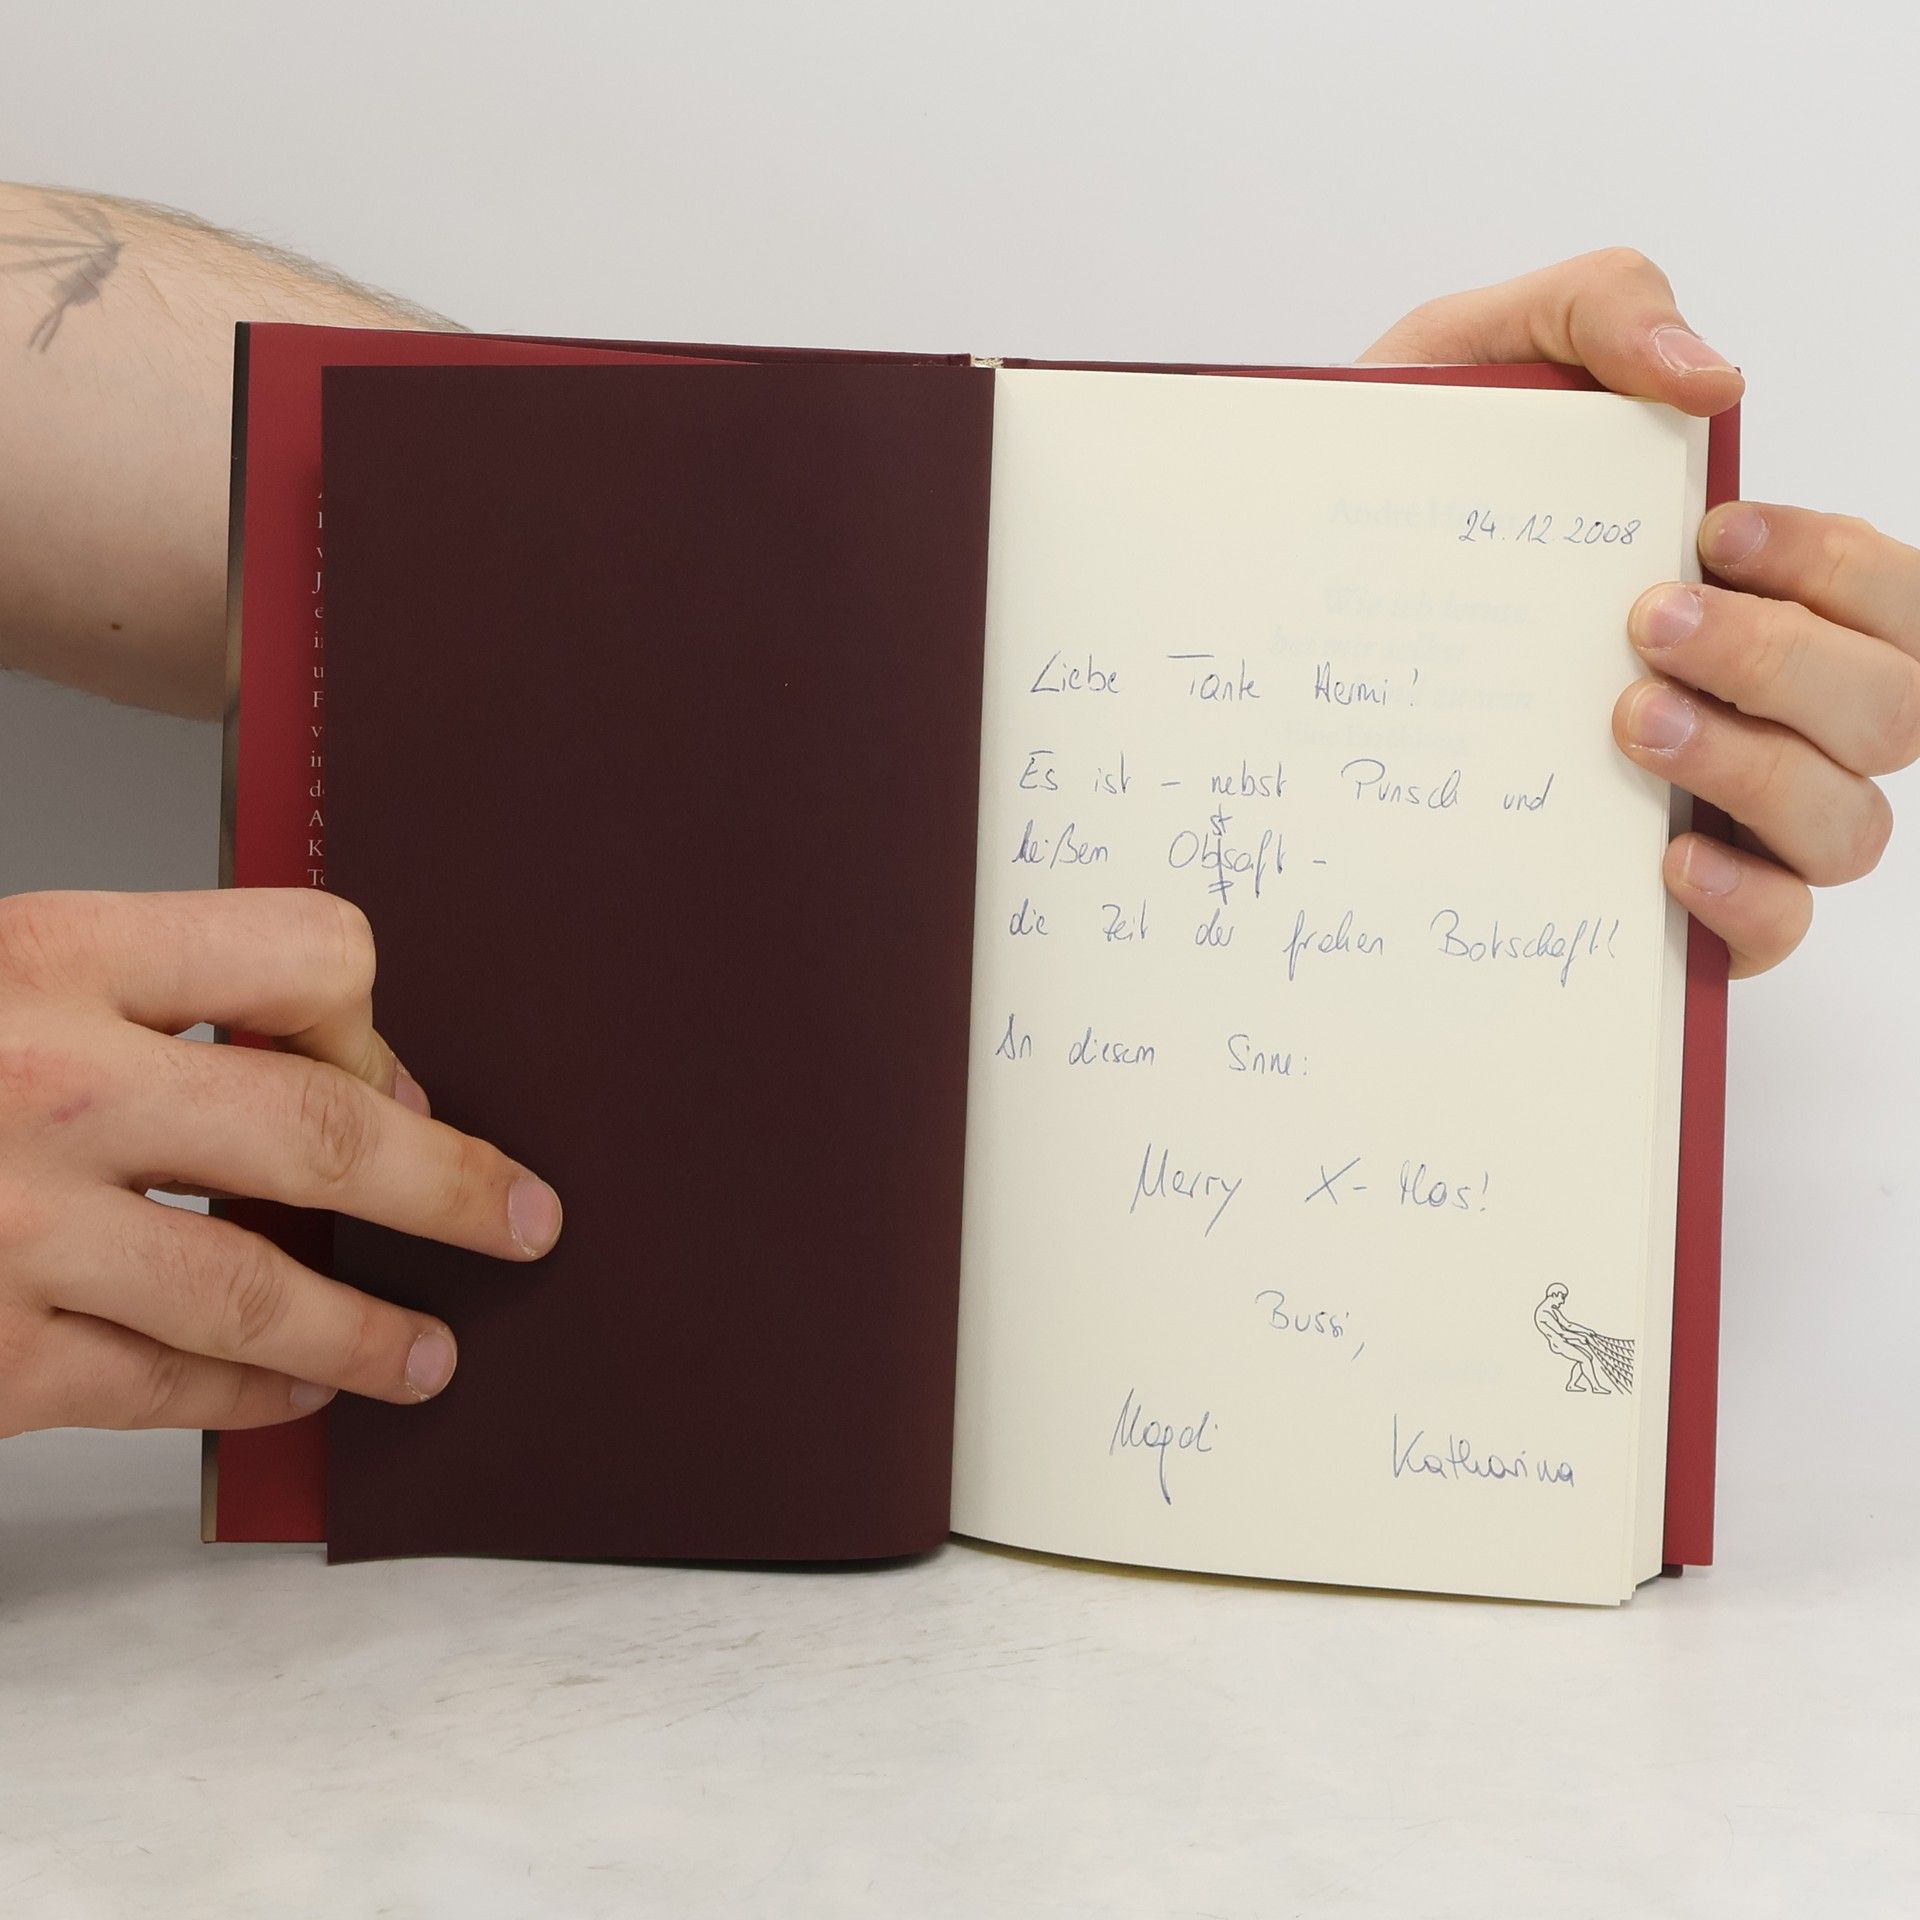 24.12 2008
Liebe Tante Hermi!
Es ist – nebst Punsch und
heißem Obstsaft –
die Zeit der frohen Botschaft!
In diesem Sinne:
Merry X-Mas!
Bussi,
Magdi Katharina